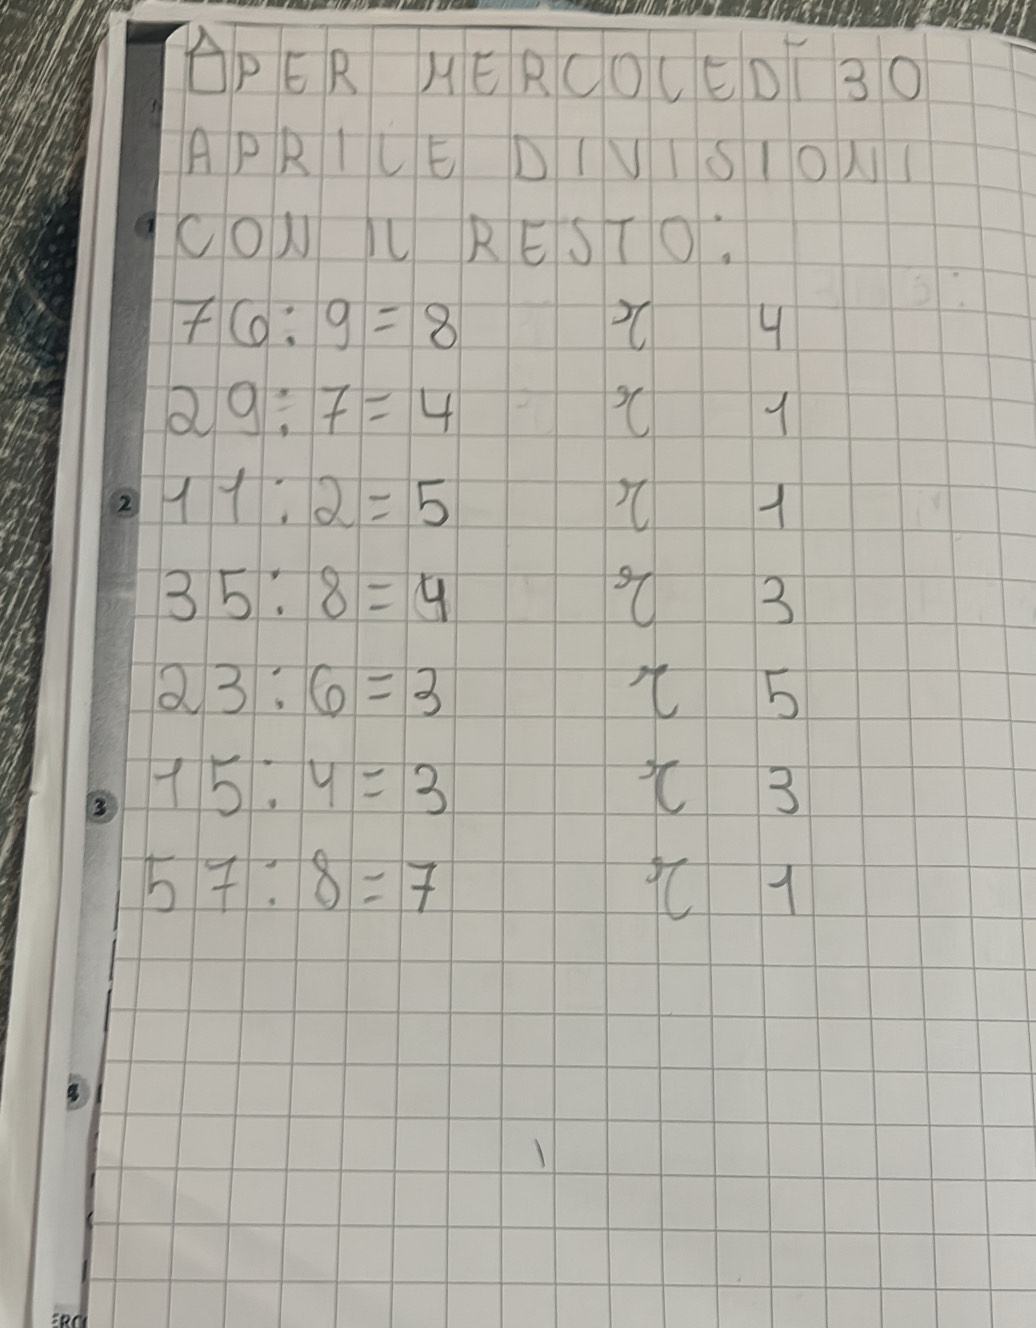 PER MERCOLEDÌ 30
APRILE DIVISIONI
CON IL RESTO:
76:9=8 r 4
29:7=4 r 1
11:2=5 r 1
35:8=4 r 3
23:6=3 r 5
15:4=3 r 3
57:8=7 r 1
1
2
3